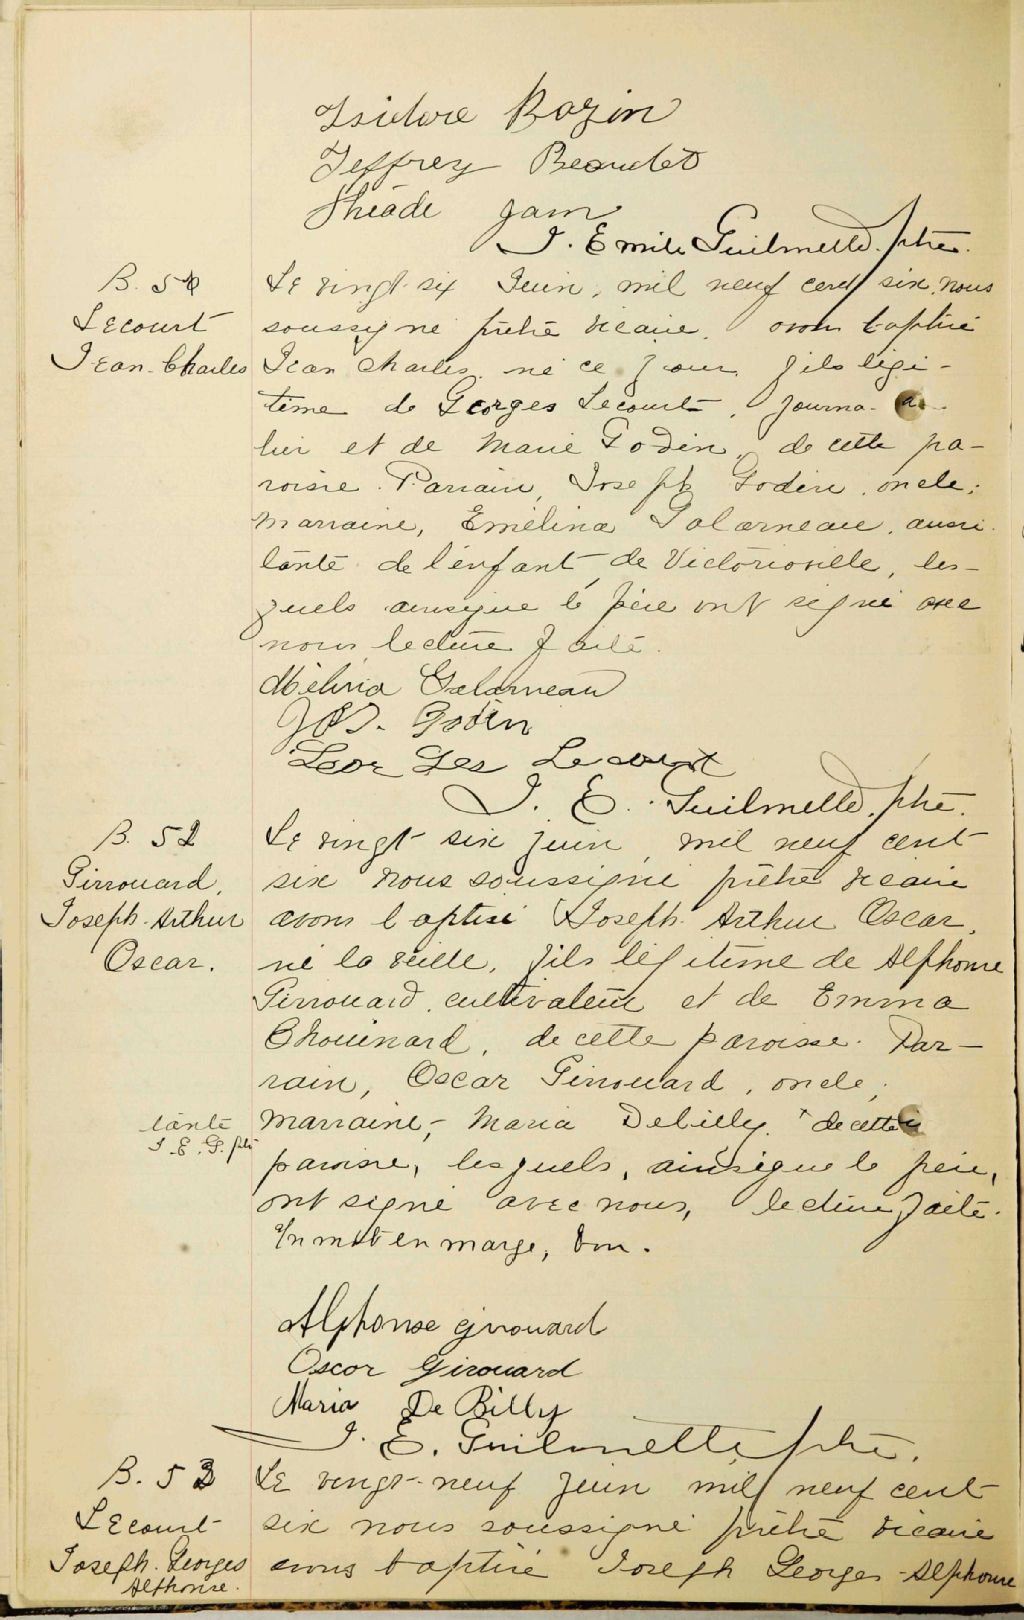 Isidore Bazin
Jeffrey Beaudet
Théade Jam
J. Emile Guilmette. ptre.
B. 51
Lecourt
Jean-Charles
Le vingt-six Juin, mil neuf cent six, nous
soussigné prêtre vicaire, avons baptisé
Jean Charles, né ce jour, fils légi-
time de Georges Lecourt, journa-
lier et de Marie Godin, de cette pa-
roisse. Parrain, Joseph Godin, oncle;
marraine, Emélina Galarneau, aussi
tante de l'enfant, de Victoriaville, les-
quels ainsique le père ont signé avec
nous, lecture faite.
Mélina Galarneau
Jos. Godin
Geor Ges Lecourt
J. E. Guilmette. ptre.
B. 52
Girrouard,
Joseph-Arthur
Oscar.
Le vingt six juin, mil neuf cent
six nous soussigné prêtre vicaire
avons baptisé Joseph Arthur Oscar,
né la veille, fils légitime de Alphonse
Girrouard, cultivateur et de Emma
Chouinard, de cette paroisse. Par-
rain, Oscar Girrouard, oncle,
tante
J. E. G. ptre
marraine, Maria Debilly, x de cette
paroisse, lesquels, ainsique le père,
ont signé avec nous, lecture faite.
Un mot en marge, bon.
Alphonse girouard
Oscar Girouard
Maria De Billy
J. E. Guilmette ptre.
B. 53
Lecourt
Joseph-Georges
Alphonse.
Le vingt-neuf juin mil neuf cent
six nous soussigné prêtre vicaire
avons baptisé Joseph Georges-Alphonse